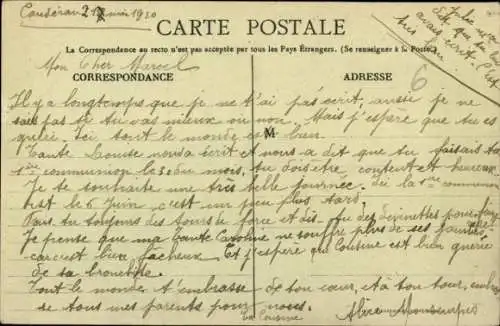 Caudéran 27 mai 1920
CARTE POSTALE
La Correspondance au recto n'est pas acceptée par tous les Pays Étrangers. (Se renseigner à la Poste)
Mon Cher Marcel
CORRESPONDANCE
ADRESSE
6
Il y a longtemps que je ne t'ai pas écrit, aussi je ne
sais pas si tu vas mieux ou non. Mais j'espère que tu es
guéri. Ici tout le monde est bien.
M
Tante Louise nous a écrit et nous a dit que tu faisais ta
1ère communion le 30 du mois, tu dois être content et heureux
Je te souhaite une très belle journée. Ici la 1ère communion
est le 6 Juin c'est un peu plus tard,
Fais tu toujours des tours de force et dis tu des devinettes pour
Je pense que ma Tante Caroline ne souffre plus de ses
car c'est bien fâcheux. Et j'espère que Louise est bien guérie
de sa bronchite.
Tout le monde t'embrasse de bon cœur, et à ton tour, embrasse
tous mes parents pour nous.
Ta Cousine
Alice